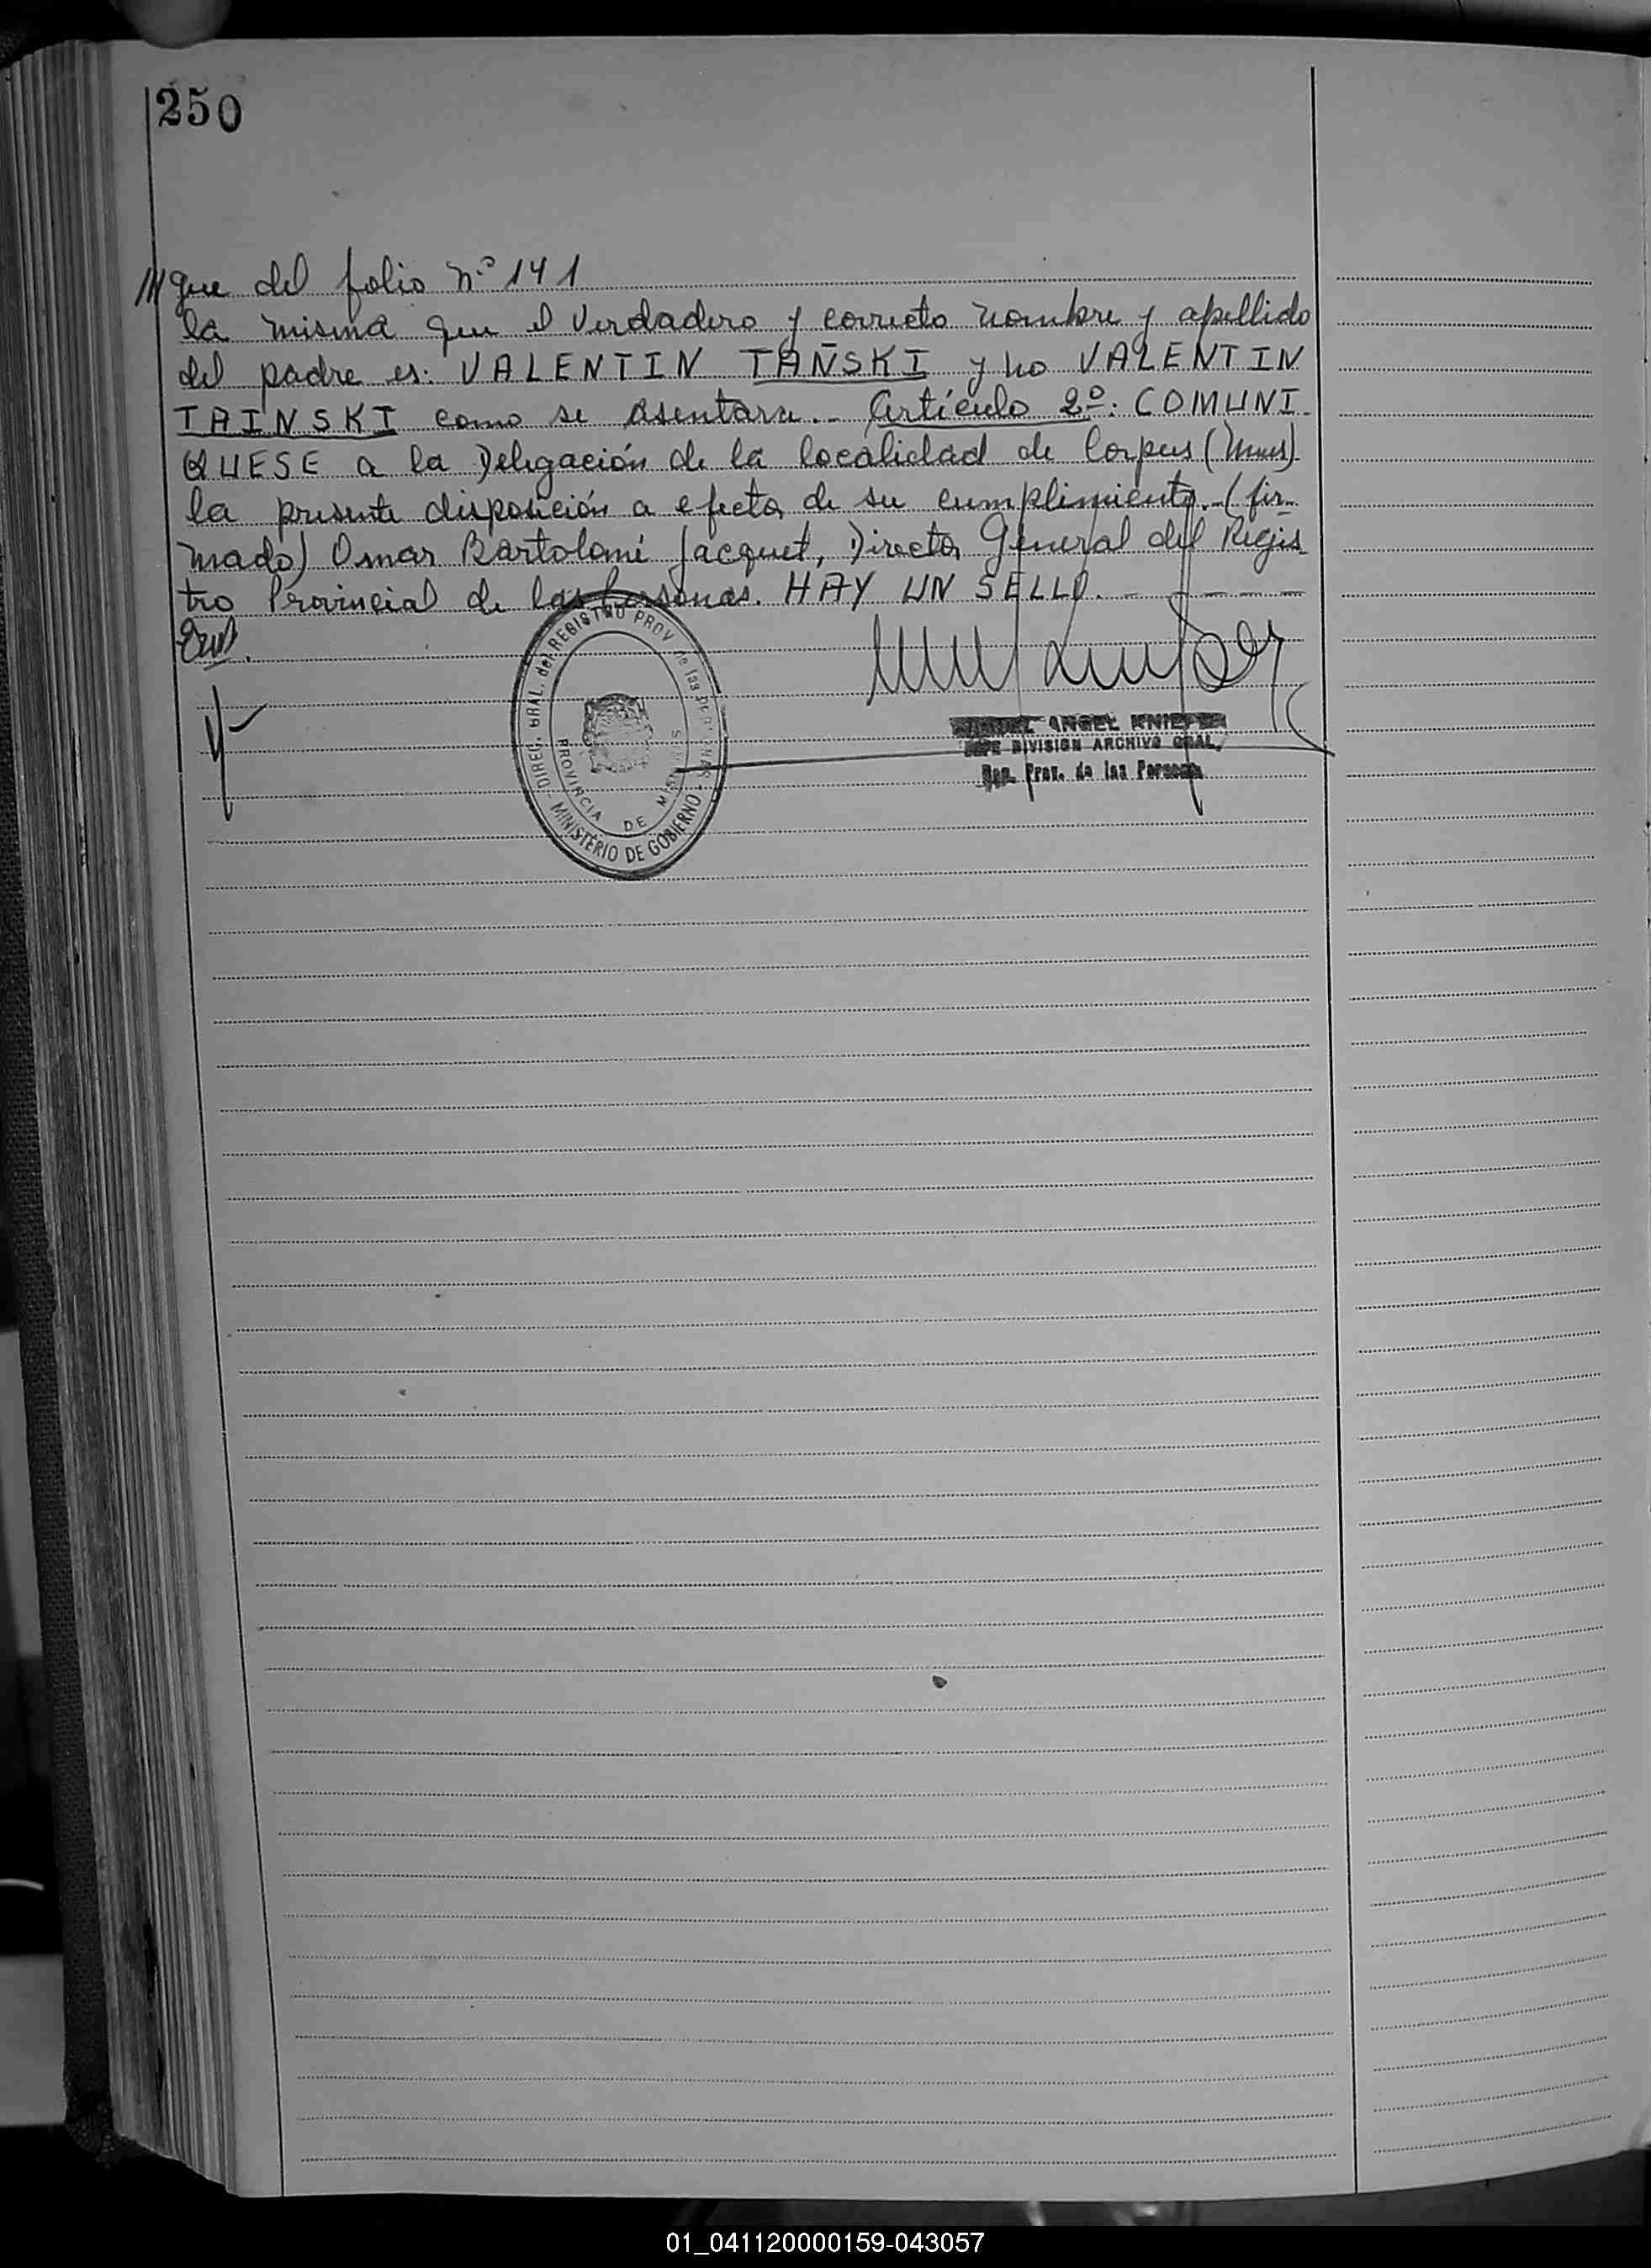 250
///gue del folio Nº 141
la misma que el verdadero y correcto nombre y apellido
del padre es: VALENTIN TAÑSKI y no VALENTIN
TAINSKI como se asentara.- Artículo 2º: COMUNI
QUESE a la Delegación de la localidad de Corpus (Mnes)
la presente disposición a efecto de su cumplimiento. (fir-
mado) Omar Bartolomé Jacquet, Director General del Regis
tro Provincial de las Personas. HAY UN SELLO. - - - - -
DIREC. GRAL. del REGISTRO PROV. de las PERSONAS
PROVINCIA DE MISIONES
MINISTERIO DE GOBIERNO
ANGEL KNIEFER
JEFE DIVISION ARCHIVO GRAL.
Reg. Prov. de las Personas
01_041120000159-043057